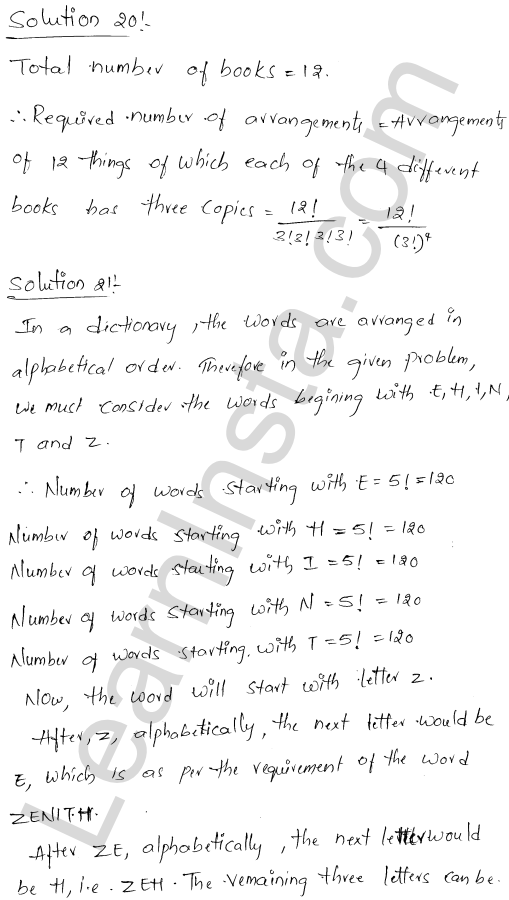 Solution 20:-
Total number of books = 12.
∴ Required number of arrangements = Arrangements
of 12 things of which each of the 4 different
books has three copies = 12!/3!3!3!3! = 12!/(3!)⁴
Solution 21:-
In a dictionary, the words are arranged in
alphabetical order. Therefore in the given problem,
we must consider the words begining with E, H, I, N,
T and Z.
∴ Number of words starting with E = 5! = 120
Number of words starting with H = 5! = 120
Number of words starting with I = 5! = 120
Number of words starting with N = 5! = 120
Number of words starting with T = 5! = 120
Now, the word will start with letter Z.
After, Z, alphabetically, the next letter would be
E, which is as per the requirement of the word
ZENITH.
After ZE, alphabetically, the next letter would
be H, i.e. ZEH. The remaining three letters can be
LearnInsta.com